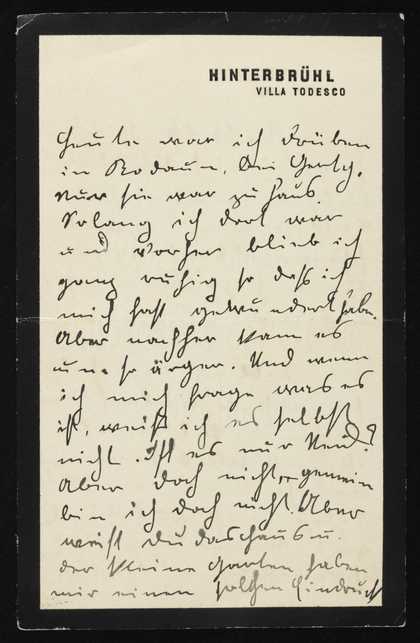 HINTERBRÜHL
VILLA TODESCO
Heute war ich drüben
in Rodaun, bei Gerty.
Nur sie war zu Haus.
Solang ich dort war
und vorher blieb ich
ganz ruhig so daß ich
mich fast gewundert habe.
Aber nachher kam es
um so ärger. Und wenn
ich mich frage was es
ist, weiß ich es selbst
nicht. Ist es nur Neid?
Aber doch nicht, gemein
bin ich doch nicht. Aber
weißt du das Haus u.
der kleine Garten haben
mir einen solchen Eindruck